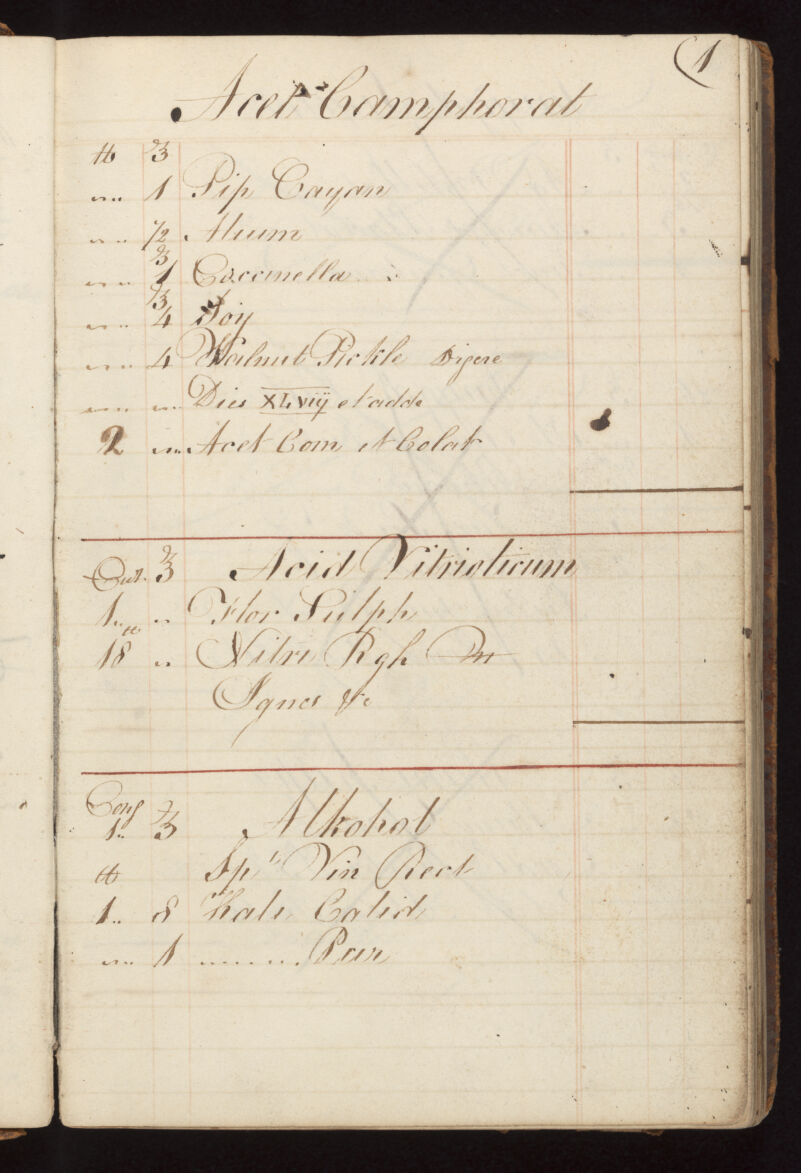 1
Acet Camphorat
℔ ℥
1 Pip Cayan
1/2 Alium
℥
1 Coccinella
℥
4 Soy
4 Walnut Pickle Digere
Dies XLVIIJ et adde
2 Acet Com et Colat
Cwt. ℥ Acid Vitriolicum
1 Flor Sulph
℔
18 Nitri Rgh
Ignes &c
Cong
1 ℥ Alkohol
℔ Spt Vin Rect
1 8 Kali Calid
1 Pur